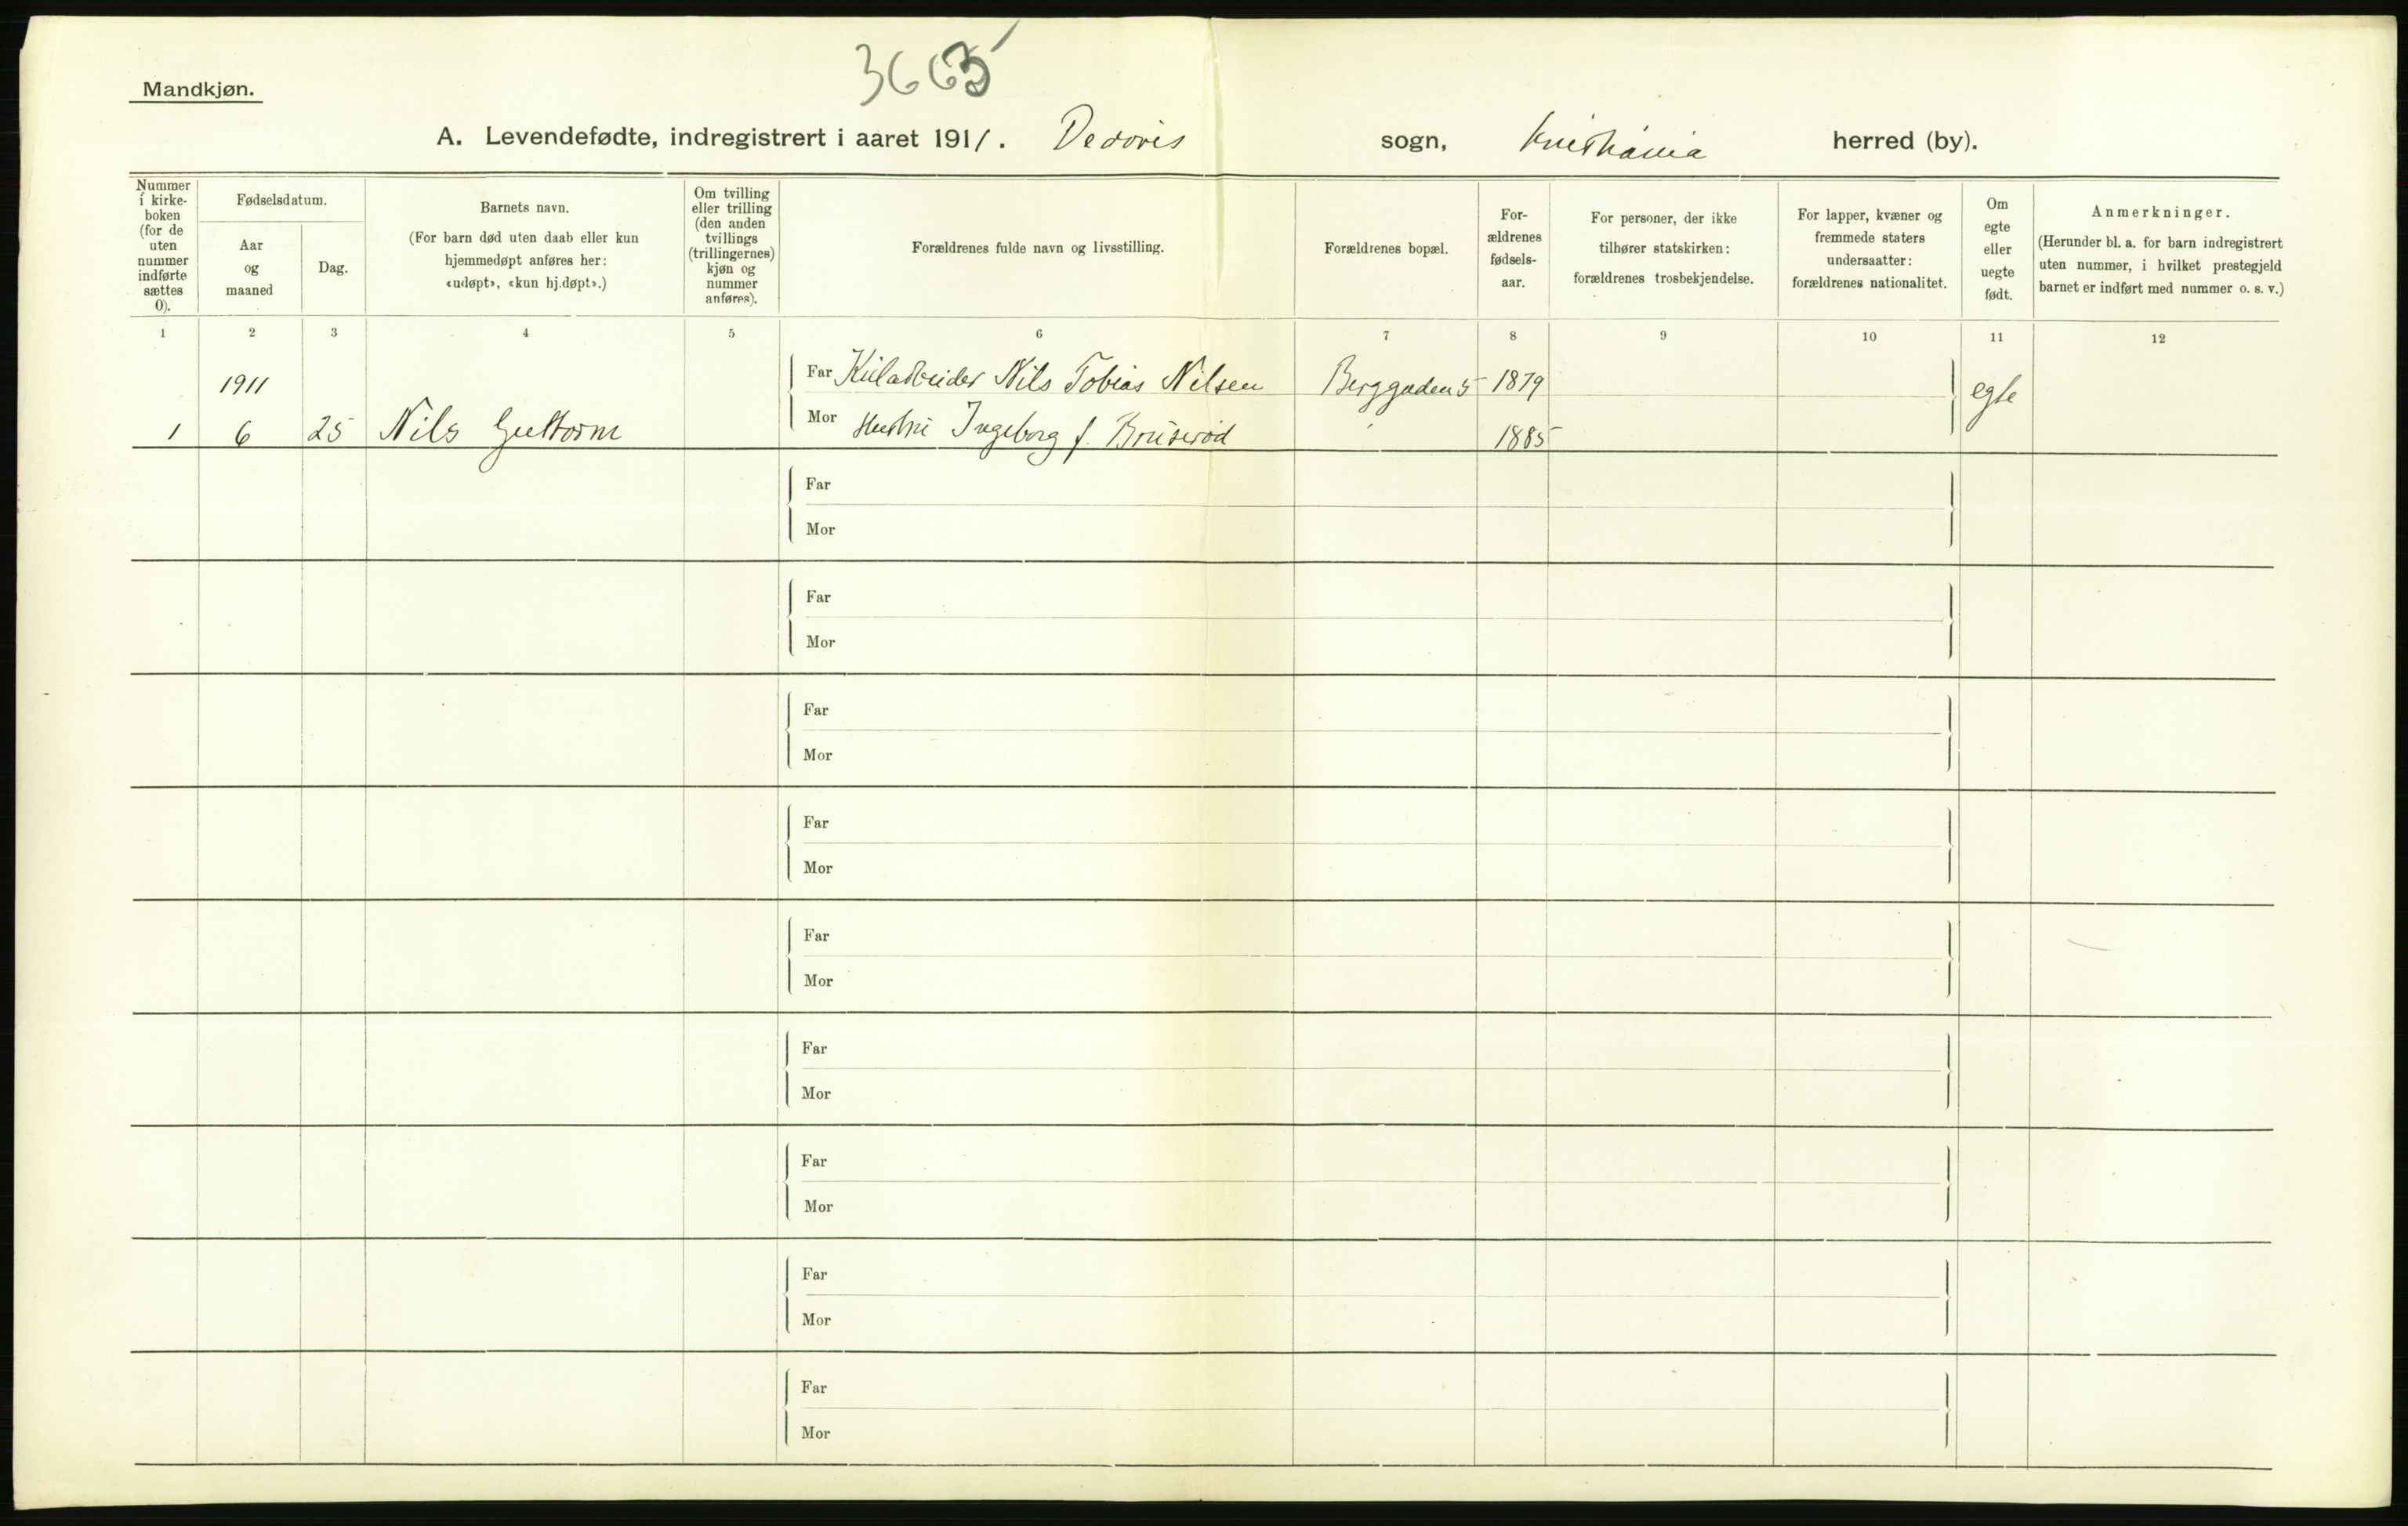 3663
Mandkjøn.
A. Levendefødte, indregistrert i aaret 1911. Dedovis sogn, Kristiania herred (by).
Nummer i kirke-boken (for de uten nummer indførte sættes 0).
Fødselsdatum.
Aar og maaned
Dag.
Barnets navn.
(For barn død uten daab eller kun hjemmedøpt anføres her: «udøpt», «kun hj.døpt».)
Om tvilling eller trilling (den anden tvillings (trillingernes) kjøn og nummer anføres).
Forældrenes fulde navn og livsstilling.
Forældrenes bopæl.
For-ældrenes fødsels-aar.
For personer, der ikke tilhører statskirken: forældrenes trosbekjendelse.
For lapper, kvæner og fremmede staters undersaatter: forældrenes nationalitet.
Om egte eller uegte født.
Anmerkninger.
(Herunder bl. a. for barn indregistrert uten nummer, i hvilket prestegjeld barnet er indført med nummer o. s. v.)
1 2 3 4 5 6 7 8 9 10 11 12
1911 Far Kularbeider Nils Tobias Nilsen Berggaden 5 1879 egte
1 6 25 Nils Guttorm Mor Hustru Ingeborg f. Bruserød 1885
Far
Mor
Far
Mor
Far
Mor
Far
Mor
Far
Mor
Far
Mor
Far
Mor
Far
Mor
Far
Mor